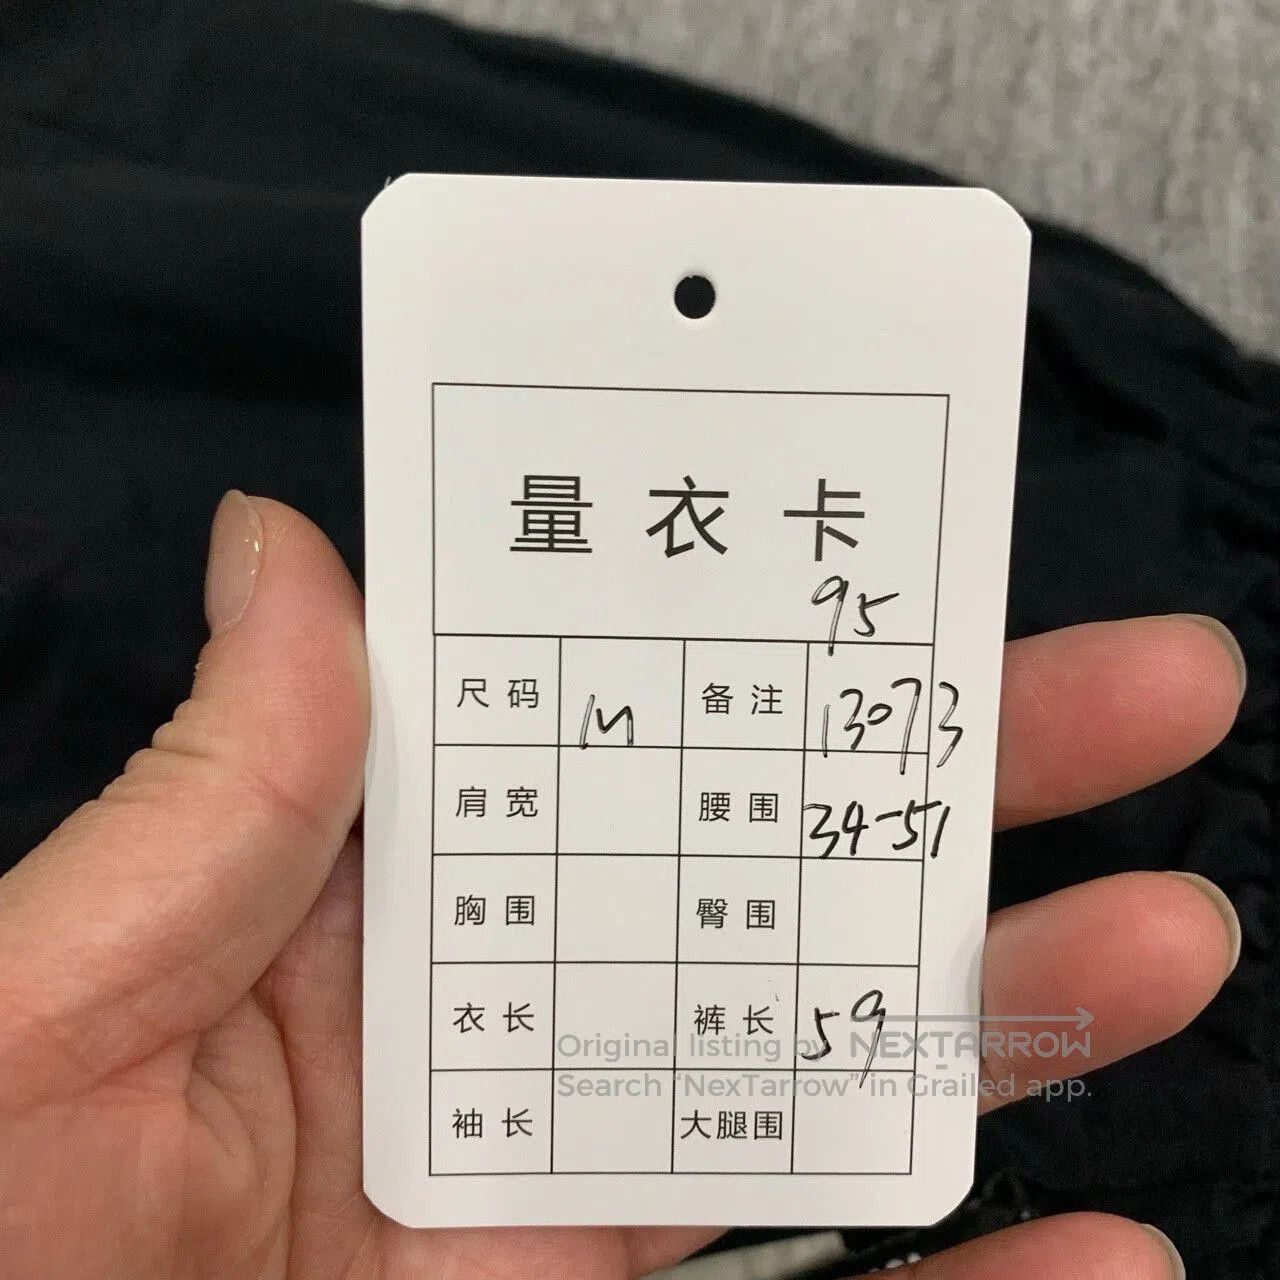 量衣卡
95
尺码 M 备注 13073
肩宽 腰围 34-51
胸围 臀围
衣长 裤长 59
袖长 大腿围
Original listing by NEXTARROW
Search "NexTarrow" in Grailed app.